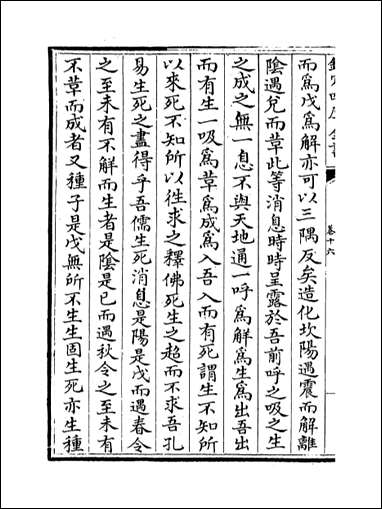 欽定四庫全書
卷十六
而為戊為解亦可以三隅反矣造化坎陽遇震而解離
陰遇兌而革此等消息時時呈露於吾前呼之吸之生
之成之無一息不與天地通一呼為解為生為出吾出
而有生一吸為革為成為入吾入而有死謂生不知所
以來死不知所以徃求之釋佛死生之超而不求吾孔
易生死之盡得乎吾儒生死消息是陽是戊而遇春令
之至未有不解而生者是陰是已而遇秋令之至未有
不革而成者又種子是戊無所不生生固生死亦生種